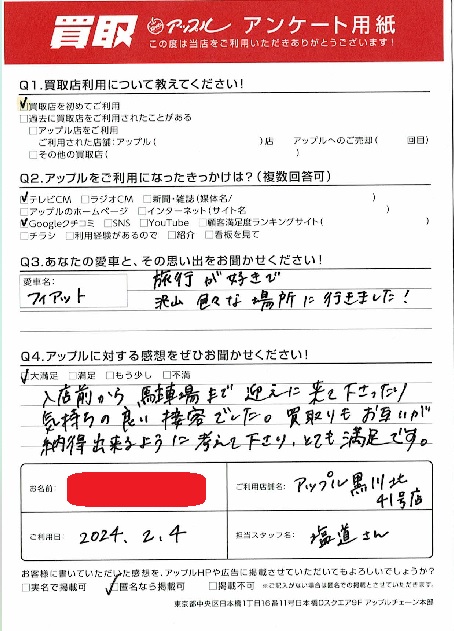 買取 アップル アンケート用紙
この度は当店をご利用いただきありがとうございます!
Q1.買取店利用について教えてください!
☑買取店を初めてご利用
□過去に買取店をご利用されたことがある
□アップル店をご利用
ご利用された店舗:アップル( )店 アップルへのご売却( 回目)
□その他の買取店( )
Q2.アップルをご利用になったきっかけは?(複数回答可)
☑テレビCM □ラジオCM □新聞・雑誌(媒体名/ )
□アップルのホームページ □インターネット(サイト名 )
☑Googleクチコミ □SNS □YouTube □顧客満足度ランキングサイト( )
□チラシ □利用経験があるので □紹介 □看板を見て
Q3.あなたの愛車と、その思い出をお聞かせください!
愛車名:
フィアット
旅行が好きで
沢山色々な場所に行きました!
Q4.アップルに対する感想をぜひお聞かせください!
☑大満足 □満足 □もう少し □不満
入店前から駐車場まで迎えに来て下さったり
気持ちの良い接客でした。買取りもお互いが
納得出来るように考えて下さり、とても満足です。
お名前:
ご利用店舗名:アップル黒川北
41号店
ご利用日:2024.2.4
担当スタッフ名:塩道さん
お客様に書いていただいた感想を、アップルHPや広告に掲載させていただいてもよろしいでしょうか?
□実名で掲載可 ☑匿名なら掲載可 □掲載不可 ※ご記入がない場合は匿名での掲載とさせていただきます。
東京都中央区日本橋1丁目16番11号日本橋Dスクエア9F アップルチェーン本部